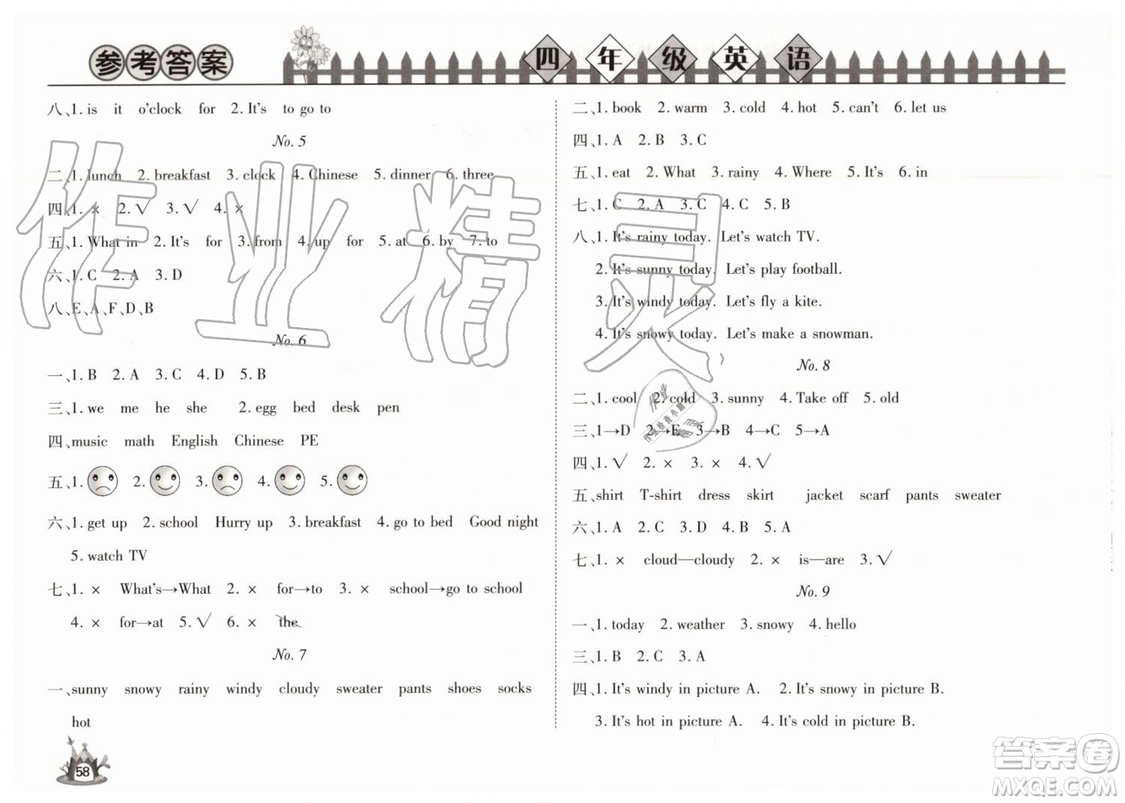 参考答案
四年级英语
八、1. is it o'clock for 2. It's to go to
No. 5
二、1. lunch 2. breakfast 3. clock 4. Chinese 5. dinner 6. three
四、1. × 2. √ 3. √ 4. ×
五、1. What in 2. It's for 3. from 4. up for 5. at 6. by 7. to
六、1. C 2. A 3. D
八、E、A、F、D、B
No. 6
一、1. B 2. A 3. C 4. D 5. B
三、1. we me he she 2. egg bed desk pen
四、music math English Chinese PE
五、1. 2. 3. 4. 5.
六、1. get up 2. school Hurry up 3. breakfast 4. go to bed Good night
5. watch TV
七、1. × What's→What 2. × for→to 3. × school→go to school
4. × for→at 5. √ 6. × the
No. 7
一、sunny snowy rainy windy cloudy sweater pants shoes socks
hot
58
二、1. book 2. warm 3. cold 4. hot 5. can't 6. let us
四、1. A 2. B 3. C
五、1. eat 2. What 3. rainy 4. Where 5. It's 6. in
七、1. C 2. A 3. D 4. C 5. B
八、1. It's rainy today. Let's watch TV.
2. It's sunny today. Let's play football.
3. It's windy today. Let's fly a kite.
4. It's snowy today. Let's make a snowman.
No. 8
二、1. cool 2. cold 3. sunny 4. Take off 5. old
三、1→D 2→E 3→B 4→C 5→A
四、1. √ 2. × 3. × 4. √
五、shirt T-shirt dress skirt jacket scarf pants sweater
六、1. A 2. C 3. D 4. B 5. A
七、1. × cloud—cloudy 2. × is—are 3. √
No. 9
一、1. today 2. weather 3. snowy 4. hello
三、1. B 2. C 3. A
四、1. It's windy in picture A. 2. It's snowy in picture B.
3. It's hot in picture A. 4. It's cold in picture B.
作业精灵
答案圈
MXQE.COM